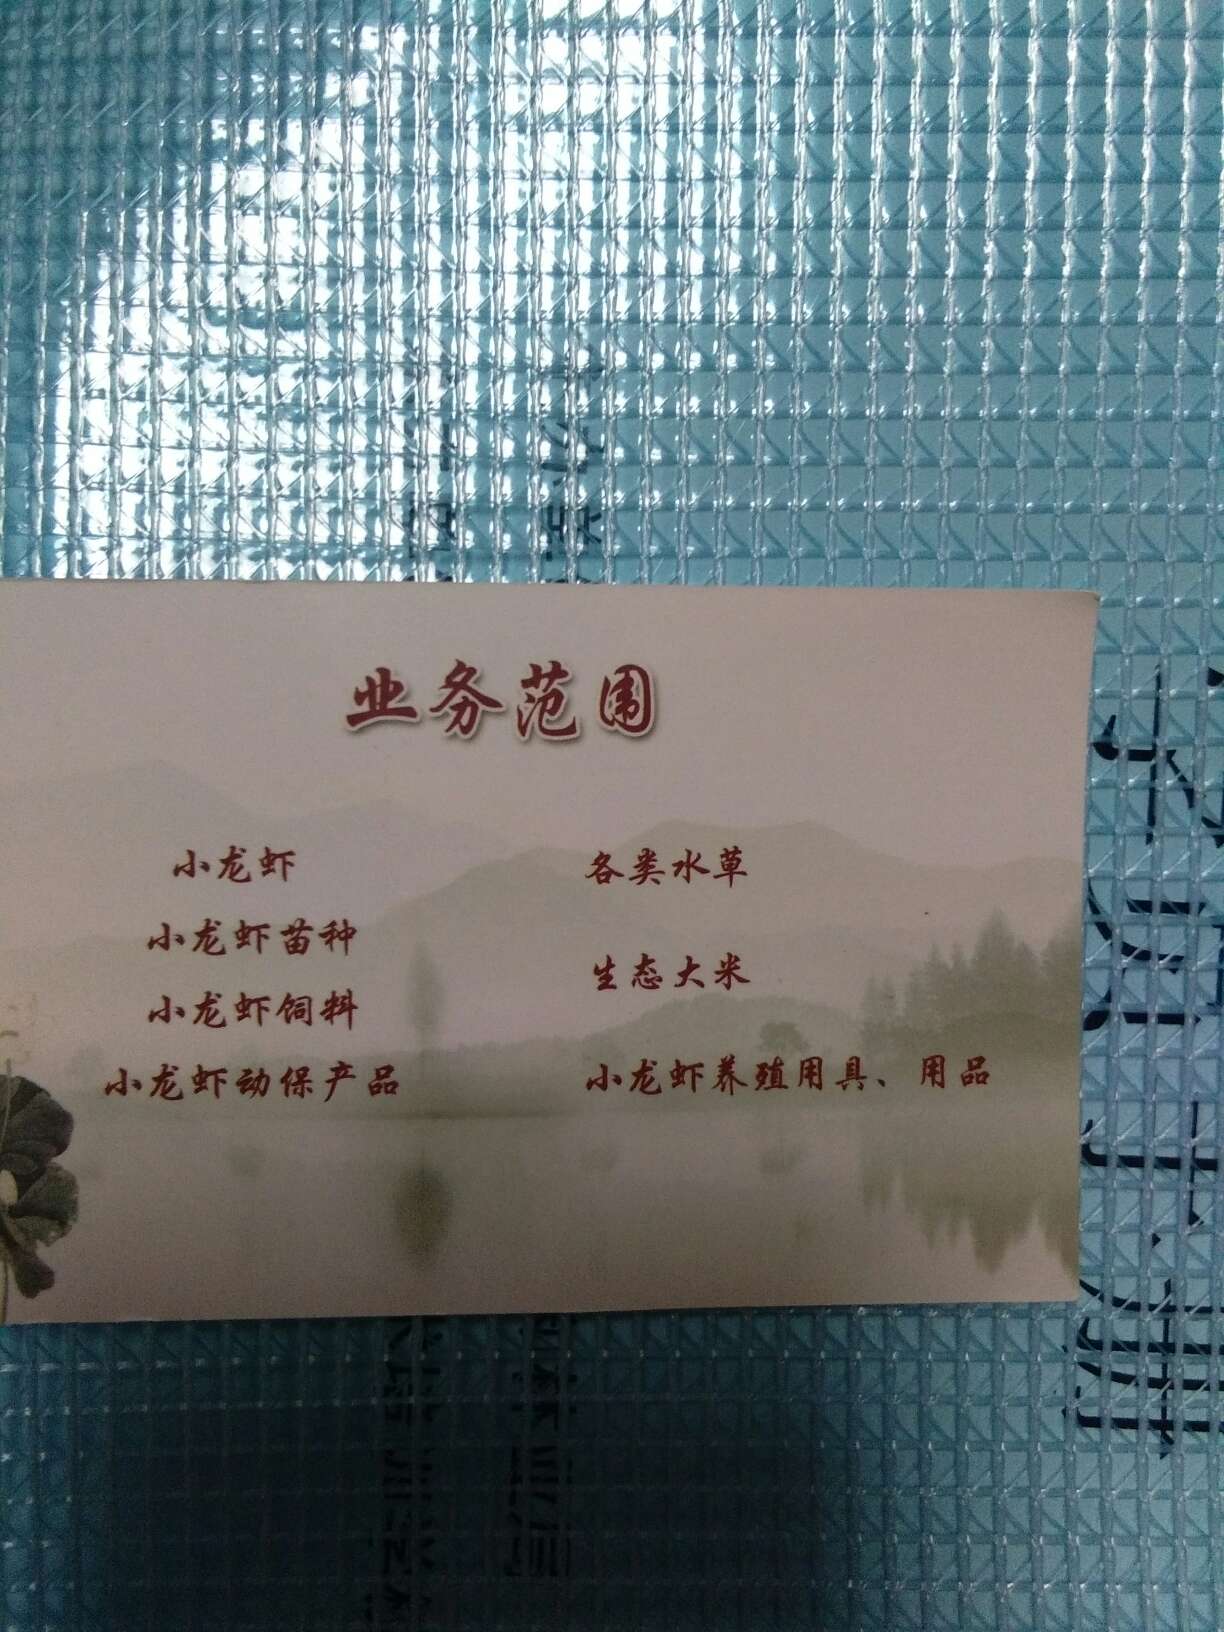 业务范围
小龙虾
小龙虾苗种
小龙虾饲料
小龙虾动保产品
各类水草
生态大米
小龙虾养殖用具、用品